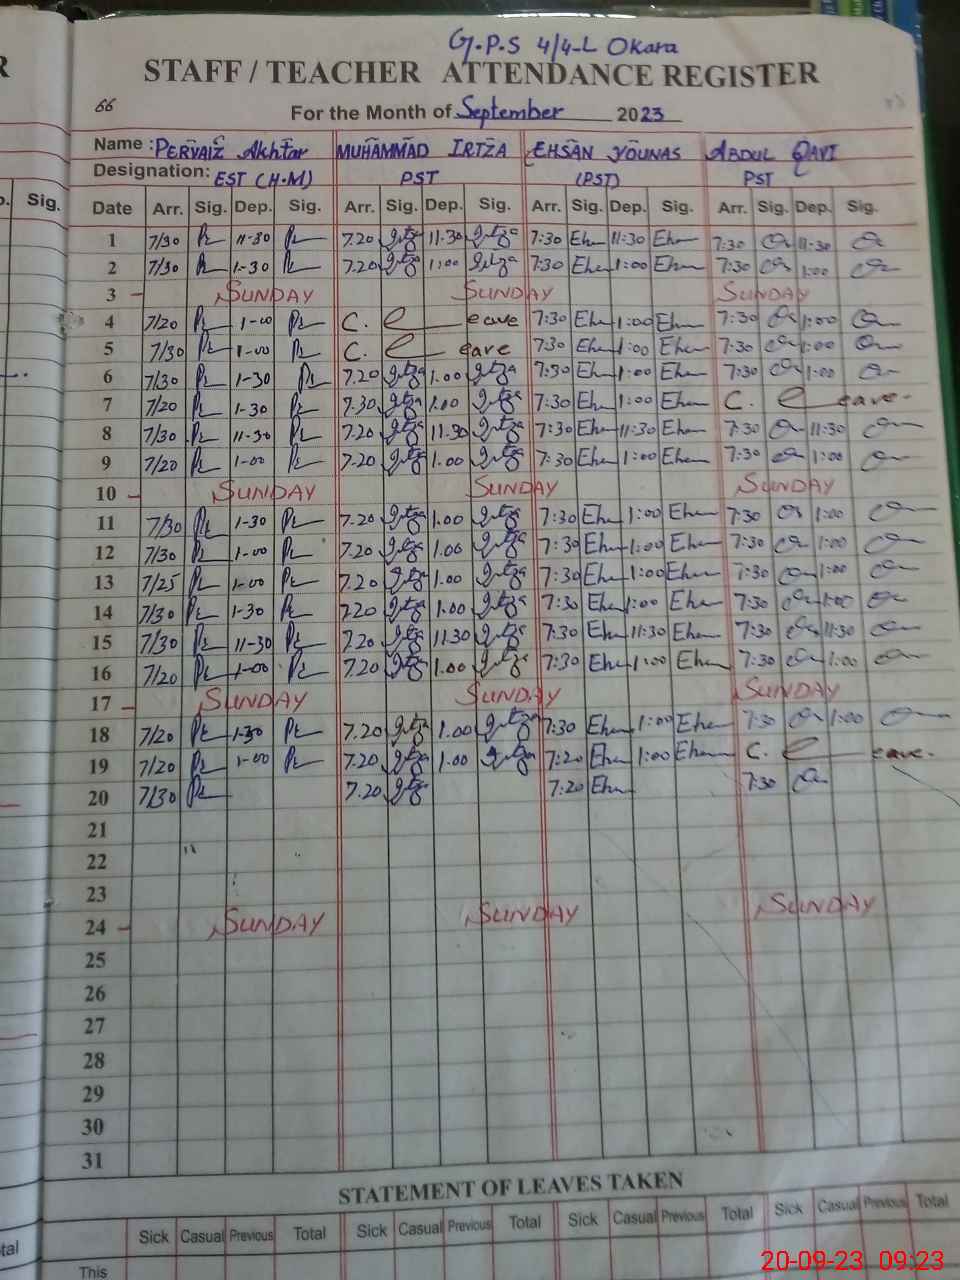 G.P.S 4/4-L Okara
STAFF / TEACHER ATTENDANCE REGISTER
66 For the Month of September 2023
Name : PERVAIZ Akhtar MUHAMMAD IRTZA EHSAN YOUNAS ABDUL QAVI
Designation: EST (H.M) PST (PST) PST
Sig. Date Arr. Sig. Dep. Sig. Arr. Sig. Dep. Sig. Arr. Sig. Dep. Sig. Arr. Sig. Dep. Sig.
1 7/30 11-30 7.20 11.30 7:30 Ehm 11:30 Ehm 7:30 11:30
2 7/30 1-30 7.20 1:00 7:30 Ehm 1:00 Ehm 7:30 1:00
3 - SUNDAY SUNDAY SUNDAY
4 7/20 1-00 C. Leave 7:30 Ehm 1:00 Ehm 7:30 1:00
5 7/30 1-00 C. Leave 7:30 Ehm 1:00 Ehm 7:30 1:00
6 7/30 1-30 7.20 1.00 7:30 Ehm 1:00 Ehm 7:30 1:00
7 7/20 1-30 7.30 1.00 7:30 Ehm 1:00 Ehm C. Leave.
8 7/30 11-30 7.20 11.30 7:30 Ehm 11:30 Ehm 7:30 11:30
9 7/20 1-00 7.20 1.00 7:30 Ehm 1:00 Ehm 7:30 1:00
10 - SUNDAY SUNDAY SUNDAY
11 7/30 1-30 7.20 1.00 7:30 Ehm 1:00 Ehm 7:30 1:00
12 7/30 1-00 7.20 1.00 7:30 Ehm 1:00 Ehm 7:30 1:00
13 7/25 1-00 7.20 1.00 7:30 Ehm 1:00 Ehm 7:30 1:00
14 7/30 1-30 7.20 1.00 7:30 Ehm 1:00 Ehm 7:30 1:00
15 7/30 11-30 7.20 11.30 7:30 Ehm 11:30 Ehm 7:30 11:30
16 7/20 1-00 7.20 1.00 7:30 Ehm 1:00 Ehm 7:30 1:00
17 - SUNDAY SUNDAY SUNDAY
18 7/20 1-30 7.20 1.00 7:30 Ehm 1:00 Ehm 7:30 1:00
19 7/20 1-00 7.20 1.00 7:20 Ehm 1:00 Ehm C. Leave.
20 7/30 7.20 7:20 Ehm 7:30
21
22
23
24 - SUNDAY SUNDAY SUNDAY
25
26
27
28
29
30
31
STATEMENT OF LEAVES TAKEN
Sick Casual Previous Total Sick Casual Previous Total Sick Casual Previous Total Sick Casual Previous Total
This
20-09-23 09:23